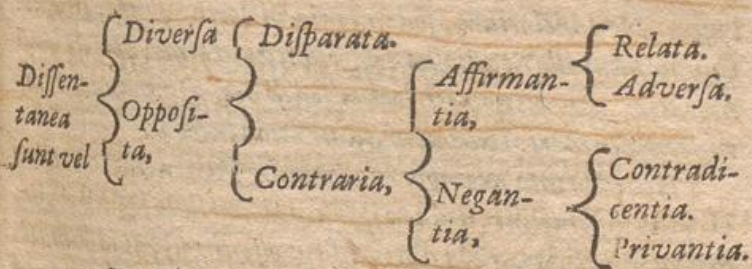 Diſſen-
tanea
ſunt vel
Diverſa
Oppoſi-
ta,
Diſparata.
Contraria,
Affirman-
tia,
Negan-
tia,
Relata.
Adverſa.
Contradi-
centia.
Privantia.